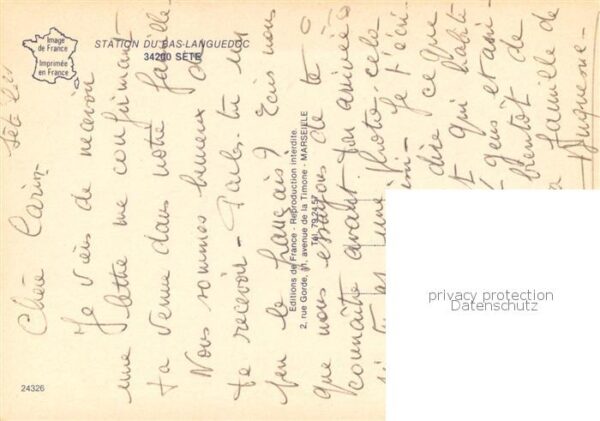 Image
de France
Imprimée
en France
STATION DU BAS-LANGUEDOC
34200 SÈTE
Sète
Chère Carin
Je viens de recevoir
une lettre me confirmant
ta venue dans notre famille
Nous sommes heureux de
te recevoir - Parles-tu un
peu le français? Ecris nous
que nous essayons de te
connaître avant ton arrivée
si tu as une photo, cela
Je t'écri-
dire ce que
qui habite
gens et ami-
bientôt de
famille de
Editions de France - Reproduction interdite.
2, rue Gorde, 11, avenue de la Timone - MARSEILLE
Tél. 79.24.57
24326
privacy protection
Datenschutz